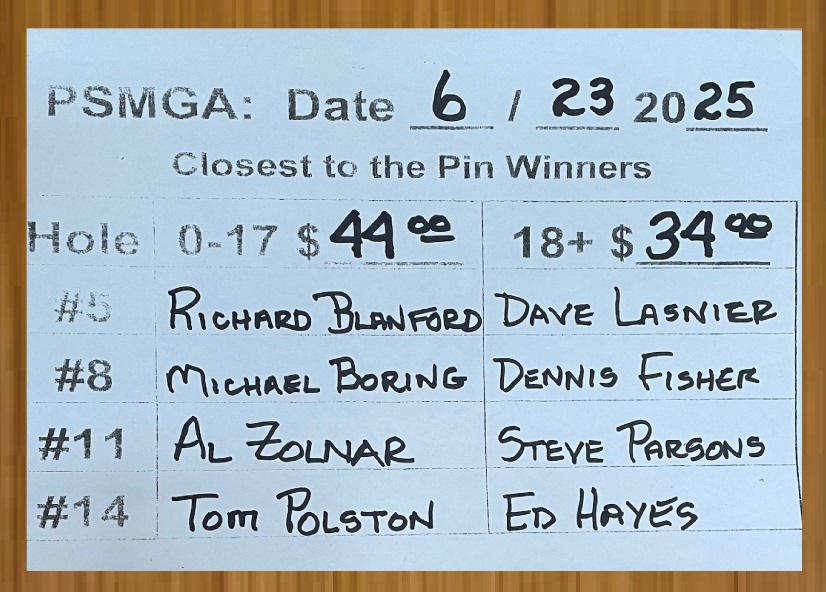 PSMGA: Date 6 / 23 2025
Closest to the Pin Winners
Hole 0-17 $ 44 00 18+ $ 34 00
#5 RICHARD BLANFORD DAVE LASNIER
#8 MICHAEL BORING DENNIS FISHER
#11 AL ZOLNAR STEVE PARSONS
#14 TOM POLSTON ED HAYES